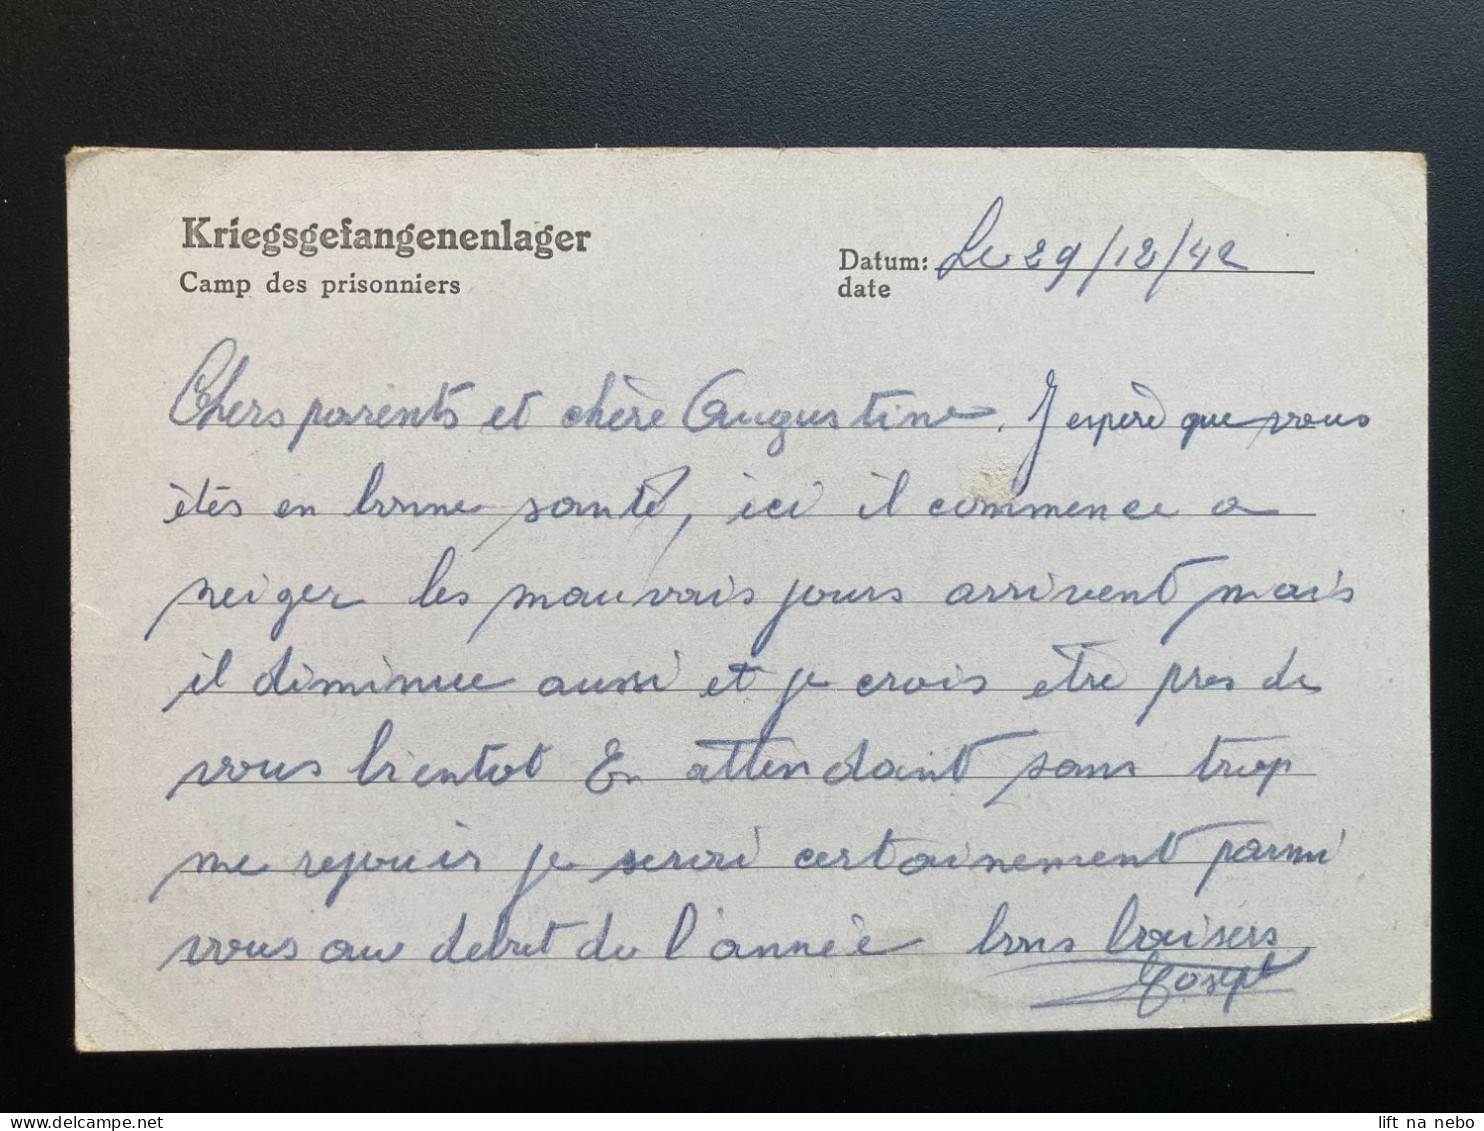 Kriegsgefangenenlager
Camp des prisonniers
Datum: Le 29/12/42
date
Chers parents et chère Augustine. J espère que vous
êtés en bonne santé, ici il commence a
neiger les mauvais jours arrivent mais
il diminue aussi et je crois être pres de
vous bientot En attendant sans trop
me rejouir je serai certainement parmi
vous au debut de l'année bons baisers
Joseph
lift na nebo